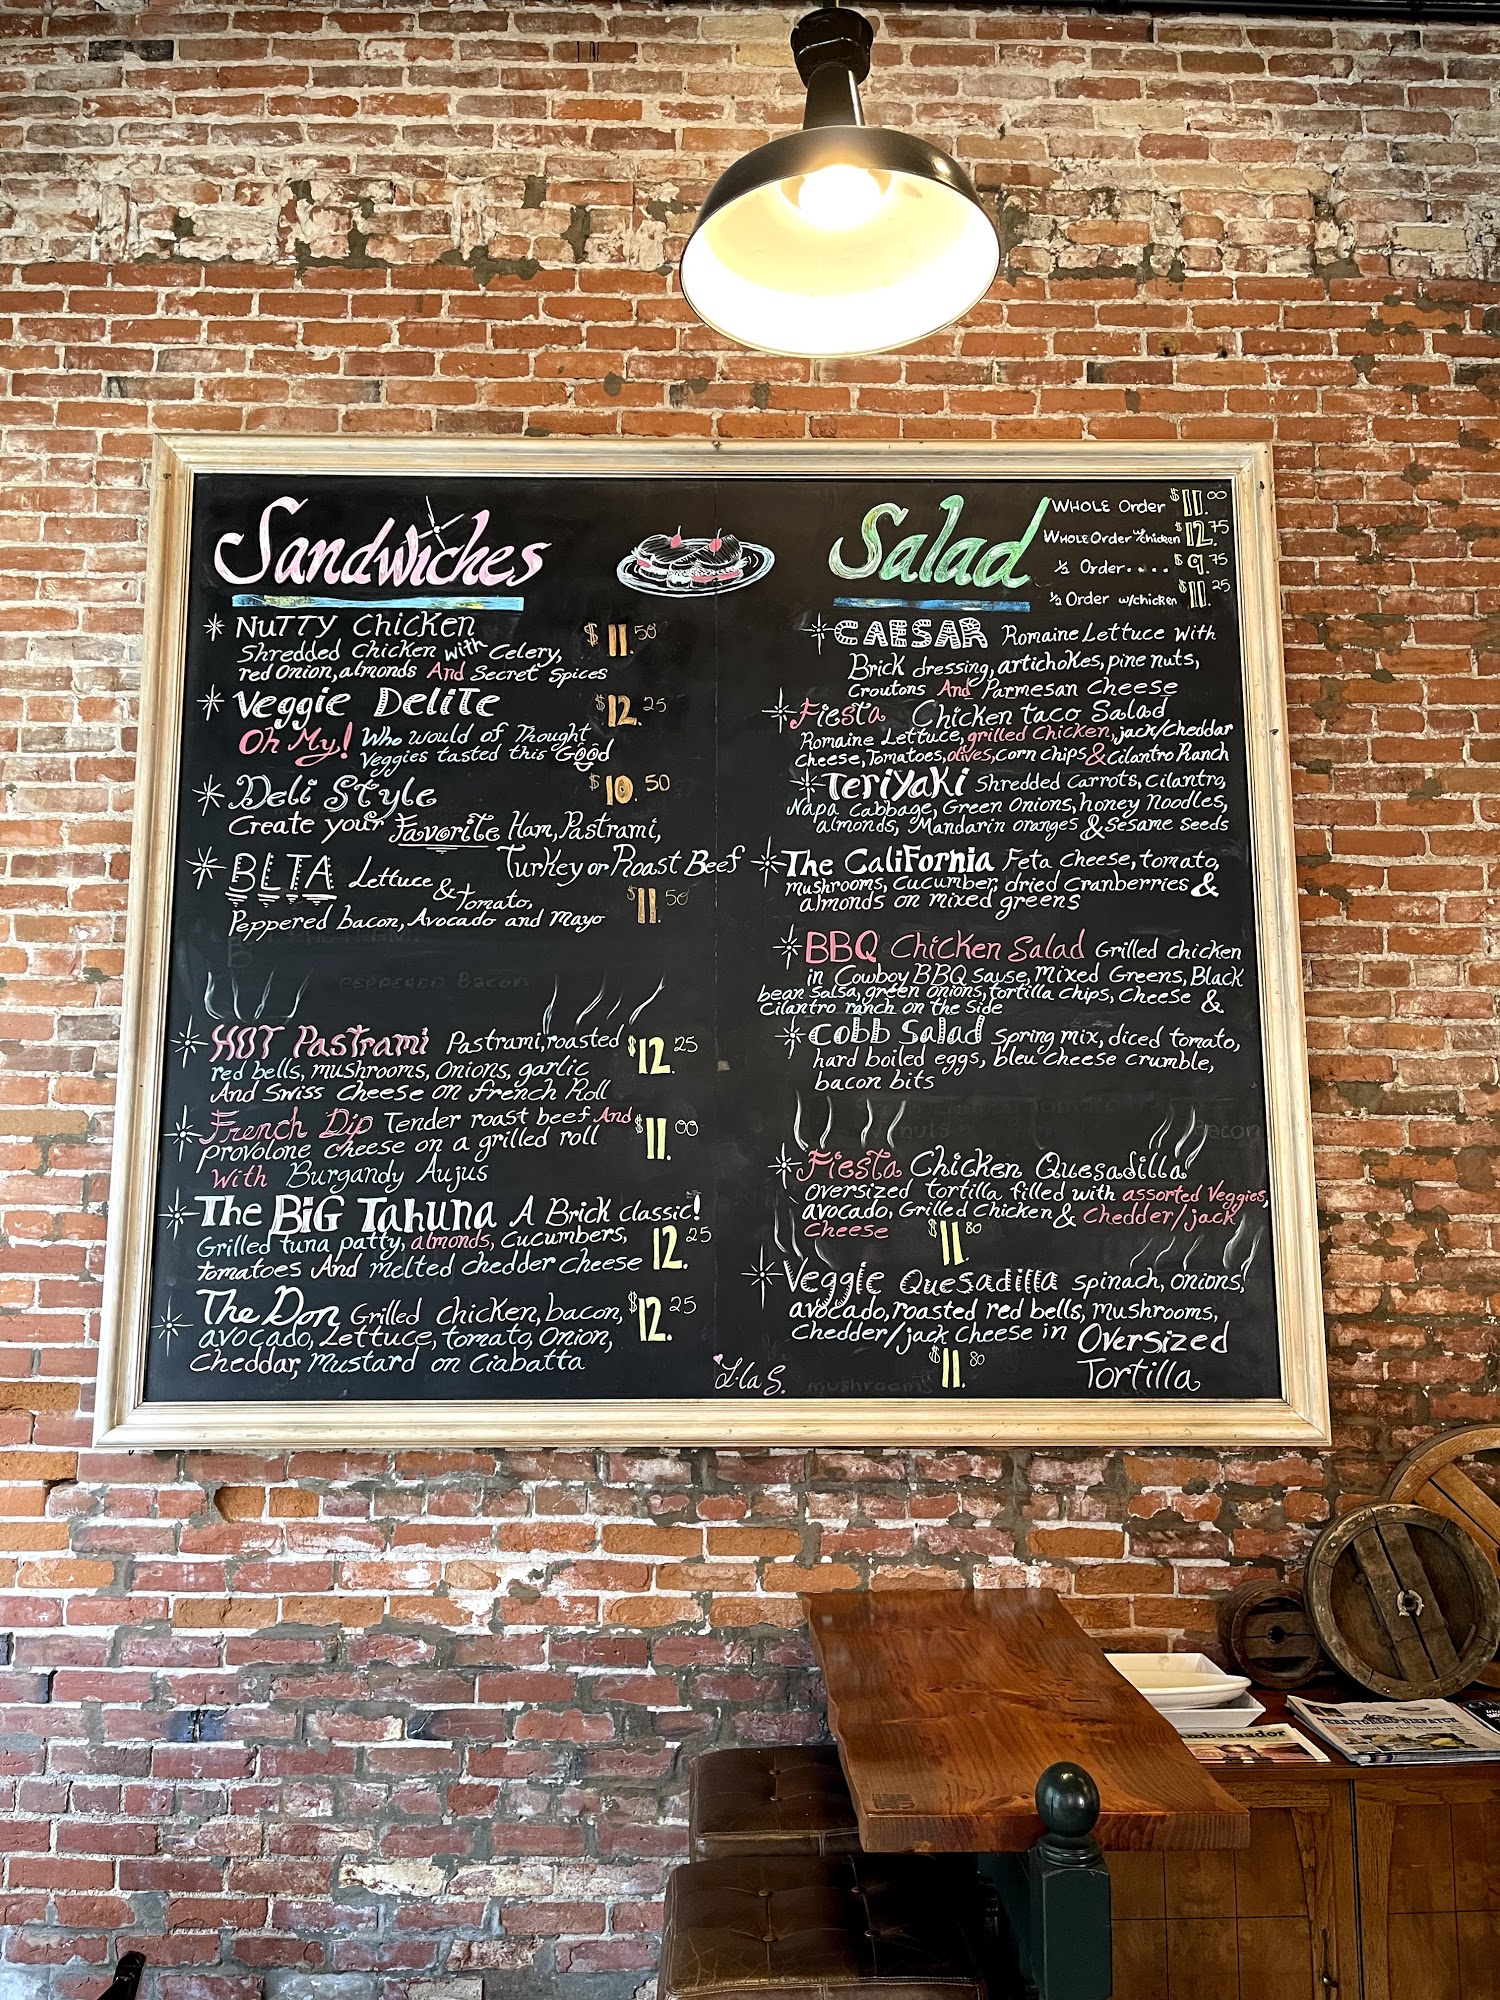 Sandwiches
* Nutty Chicken $11.50
Shredded Chicken with Celery,
red Onion, almonds And Secret Spices
* Veggie Delite $12.25
Oh My! Who would of Thought
Veggies tasted this Good
* Deli Style $10.50
Create your Favorite Ham, Pastrami,
Turkey or Roast Beef
* BLTA Lettuce & Tomato, $11.50
Peppered bacon, Avocado and Mayo
Peppered Bacon
* HOT Pastrami Pastrami, roasted $12.25
red bells, mushrooms, Onions, garlic
And Swiss Cheese on french Roll
* French Dip Tender roast beef And $11.00
provolone cheese on a grilled roll
With Burgandy Aujus
* The BiG Tahuna A Brick classic!
Grilled tuna patty, almonds, cucumbers, 12.25
tomatoes And melted chedder cheese
* The Don Grilled chicken, bacon, $12.25
avocado, Lettuce, tomato, Onion,
Cheddar, Mustard on Ciabatta
Salad
WHOLE Order $11.00
WHOLE Order w/chicken $12.75
1/2 Order.... $9.75
1/2 Order w/chicken $11.25
* CAESAR Romaine Lettuce With
Brick dressing, artichokes, pine nuts,
Croutons And Parmesan Cheese
* Fiesta Chicken Taco Salad
Romaine Lettuce, grilled Chicken, jack/cheddar
Cheese, Tomatoes, olives, corn chips & Cilantro Ranch
* Teriyaki Shredded Carrots, Cilantro,
Napa Cabbage, Green Onions, honey Noodles,
almonds, Mandarin oranges & Sesame Seeds
* The California Feta Cheese, tomato,
mushrooms, Cucumber, dried Cranberries &
almonds on mixed greens
* BBQ Chicken Salad Grilled chicken
in Cowboy BBQ sause, Mixed Greens, Black
bean Salsa, green onions, tortilla chips, Cheese &
Cilantro ranch on the Side
* Cobb Salad Spring mix, diced tomato,
hard boiled eggs, bleu cheese crumble,
bacon bits
nuts Bacon
* Fiesta Chicken Quesadilla
Oversized tortilla filled with assorted Veggies,
avocado, Grilled Chicken & Chedder/jack
Cheese $11.80
* Veggie Quesadilla spinach, onions,
avocado, roasted red bells, mushrooms,
Chedder/jack Cheese in Oversized
Tortilla
$11.80
mushrooms
TERRITORIAL DISPATCH